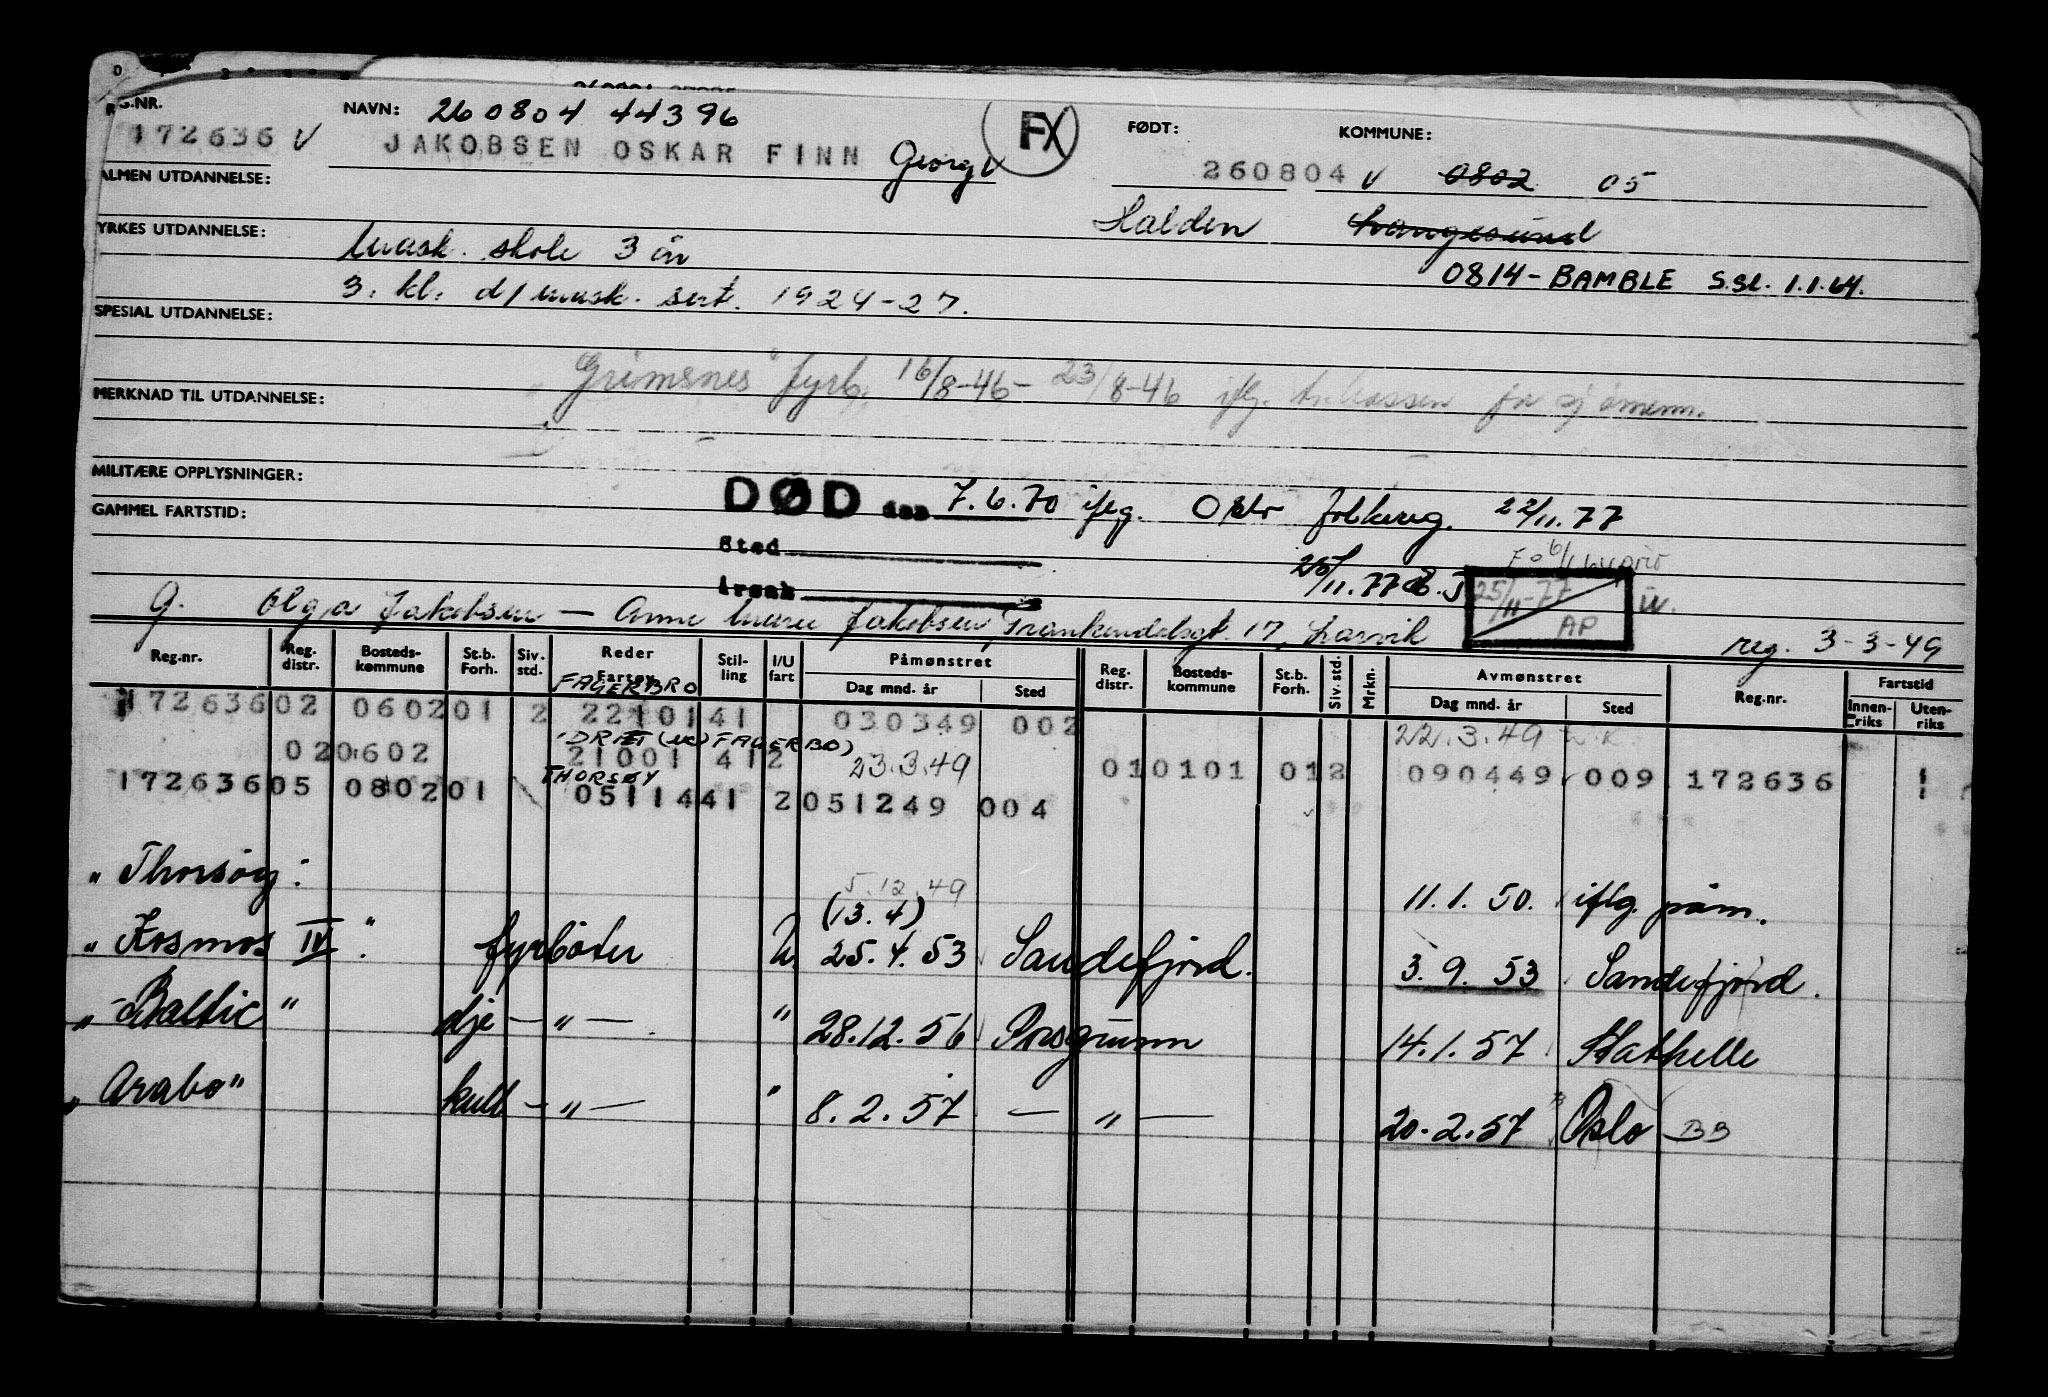 REG.NR. NAVN: 260804 44396 FX FØDT: KOMMUNE:
172636 V JAKOBSEN OSKAR FINN Georg V 260804 V 0802 05
ALMEN UTDANNELSE:
Halden Langesund
YRKES UTDANNELSE: Mask. skole 3 år
0814 - BAMBLE S.Sl. 1.1.64.
3. kl. d/mask. sert. 1924-27.
SPESIAL UTDANNELSE:
"Grimsnes" fyrb. 16/8-46 - 23/8-46 iflg. for sjømenn.
MERKNAD TIL UTDANNELSE:
MILITÆRE OPPLYSNINGER:
DØD den 7.6.70 iflg. Oslo folkereg. 22/11.77
GAMMEL FARTSTID:
Sted
Årsak 25/11.77 25/11-77 AP
G. Olga Jakobsen — Anne Marie Jakobsen, Frankendalsgt. 17, Larvik reg. 3-3-49
Reg.nr. Reg. distr. Bosteds-kommune St.b. Forh. Siv. std. Reder Fartøy Stil-ling I/U fart Påmønstret Dag mnd. år Sted Reg. distr. Bosteds-kommune St.b. Forh. Siv. std. Mrkn. Avmønstret Dag mnd. år Sted Reg.nr. Fartstid Innen-riks Uten-riks
FAGERBRO
172636 02 0602 01 2 22101 41 030349 002 22.3.49
IDRÆT (ex FAGERBRO)
02 0602 21001 41 2 23.3.49 01 0101 01 2 090449 009 172636 1
THORSØY
172636 05 0802 01 05114 41 2 051249 004 1
"Thorsøy: 5.12.49 11.1.50. iflg. påm.
(13.4)
"Kosmos IV" fyrbøter U. 25.4.53 Sandefjord. 3.9.53 Sandefjord.
"Baltic" dje — " — " 28.12.56 Porsgrunn 14.1.57 Stathelle
"Arabo" kull — " — " 8.2.57 — " — 20.2.57 Oslo BB